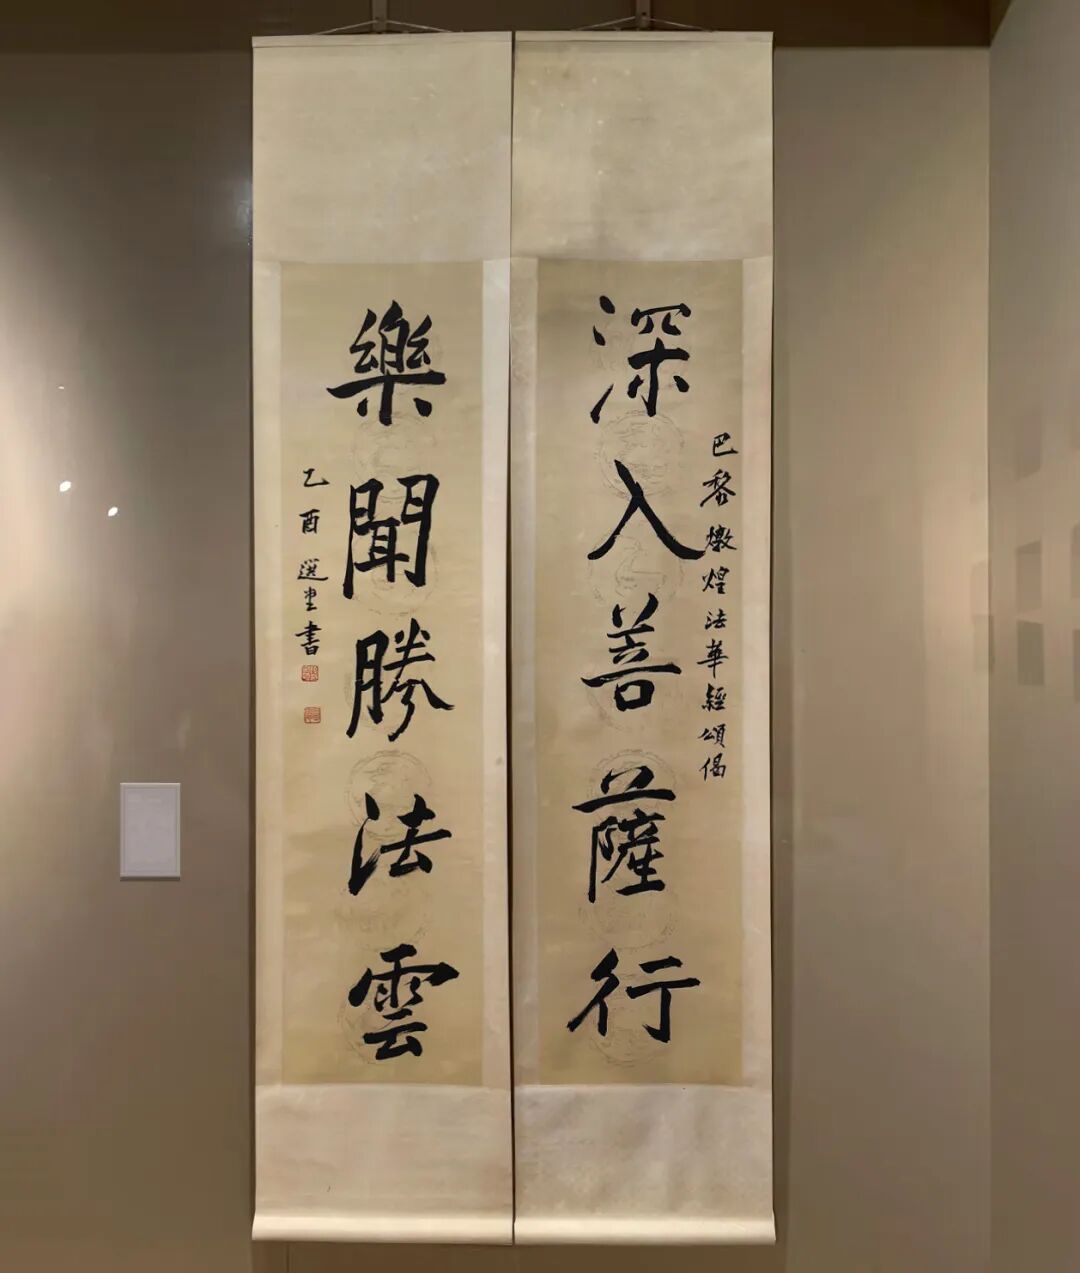 巴黎燉煌法華經頌偈
深入菩薩行
樂聞勝法雲
乙酉選堂書